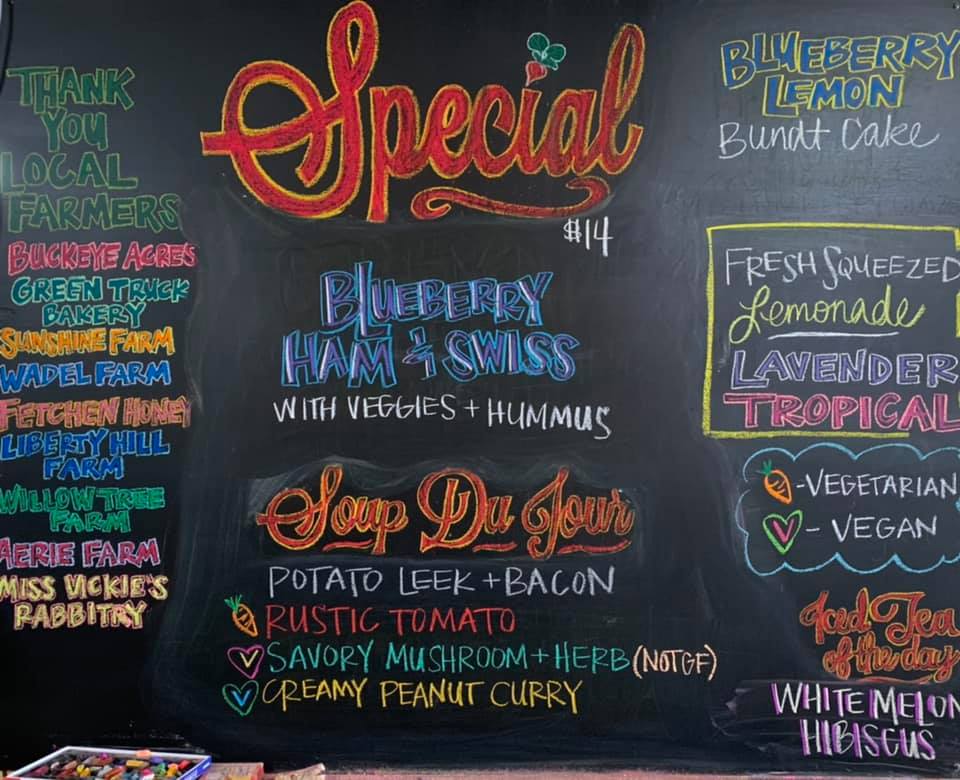 THANK
YOU
LOCAL
FARMERS
BUCKEYE ACRES
GREEN TRUCK
BAKERY
SUNSHINE FARM
WADEL FARM
FETCHEN HONEY
LIBERTY HILL
FARM
WILLOW TREE
FARM
AERIE FARM
MISS VICKIE'S
RABBITRY
Special
$14
BLUEBERRY
HAM & SWISS
WITH VEGGIES + HUMMUS
Soup Du Jour
POTATO LEEK + BACON
RUSTIC TOMATO
V SAVORY MUSHROOM + HERB (NOT GF)
V CREAMY PEANUT CURRY
BLUEBERRY
LEMON
Bundt Cake
FRESH SQUEEZED
Lemonade
LAVENDER
TROPICAL
- VEGETARIAN
V - VEGAN
Iced Tea
of the day
WHITE MELON
HIBISCUS